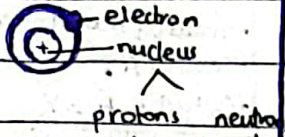 electron
+
nucleus
protons